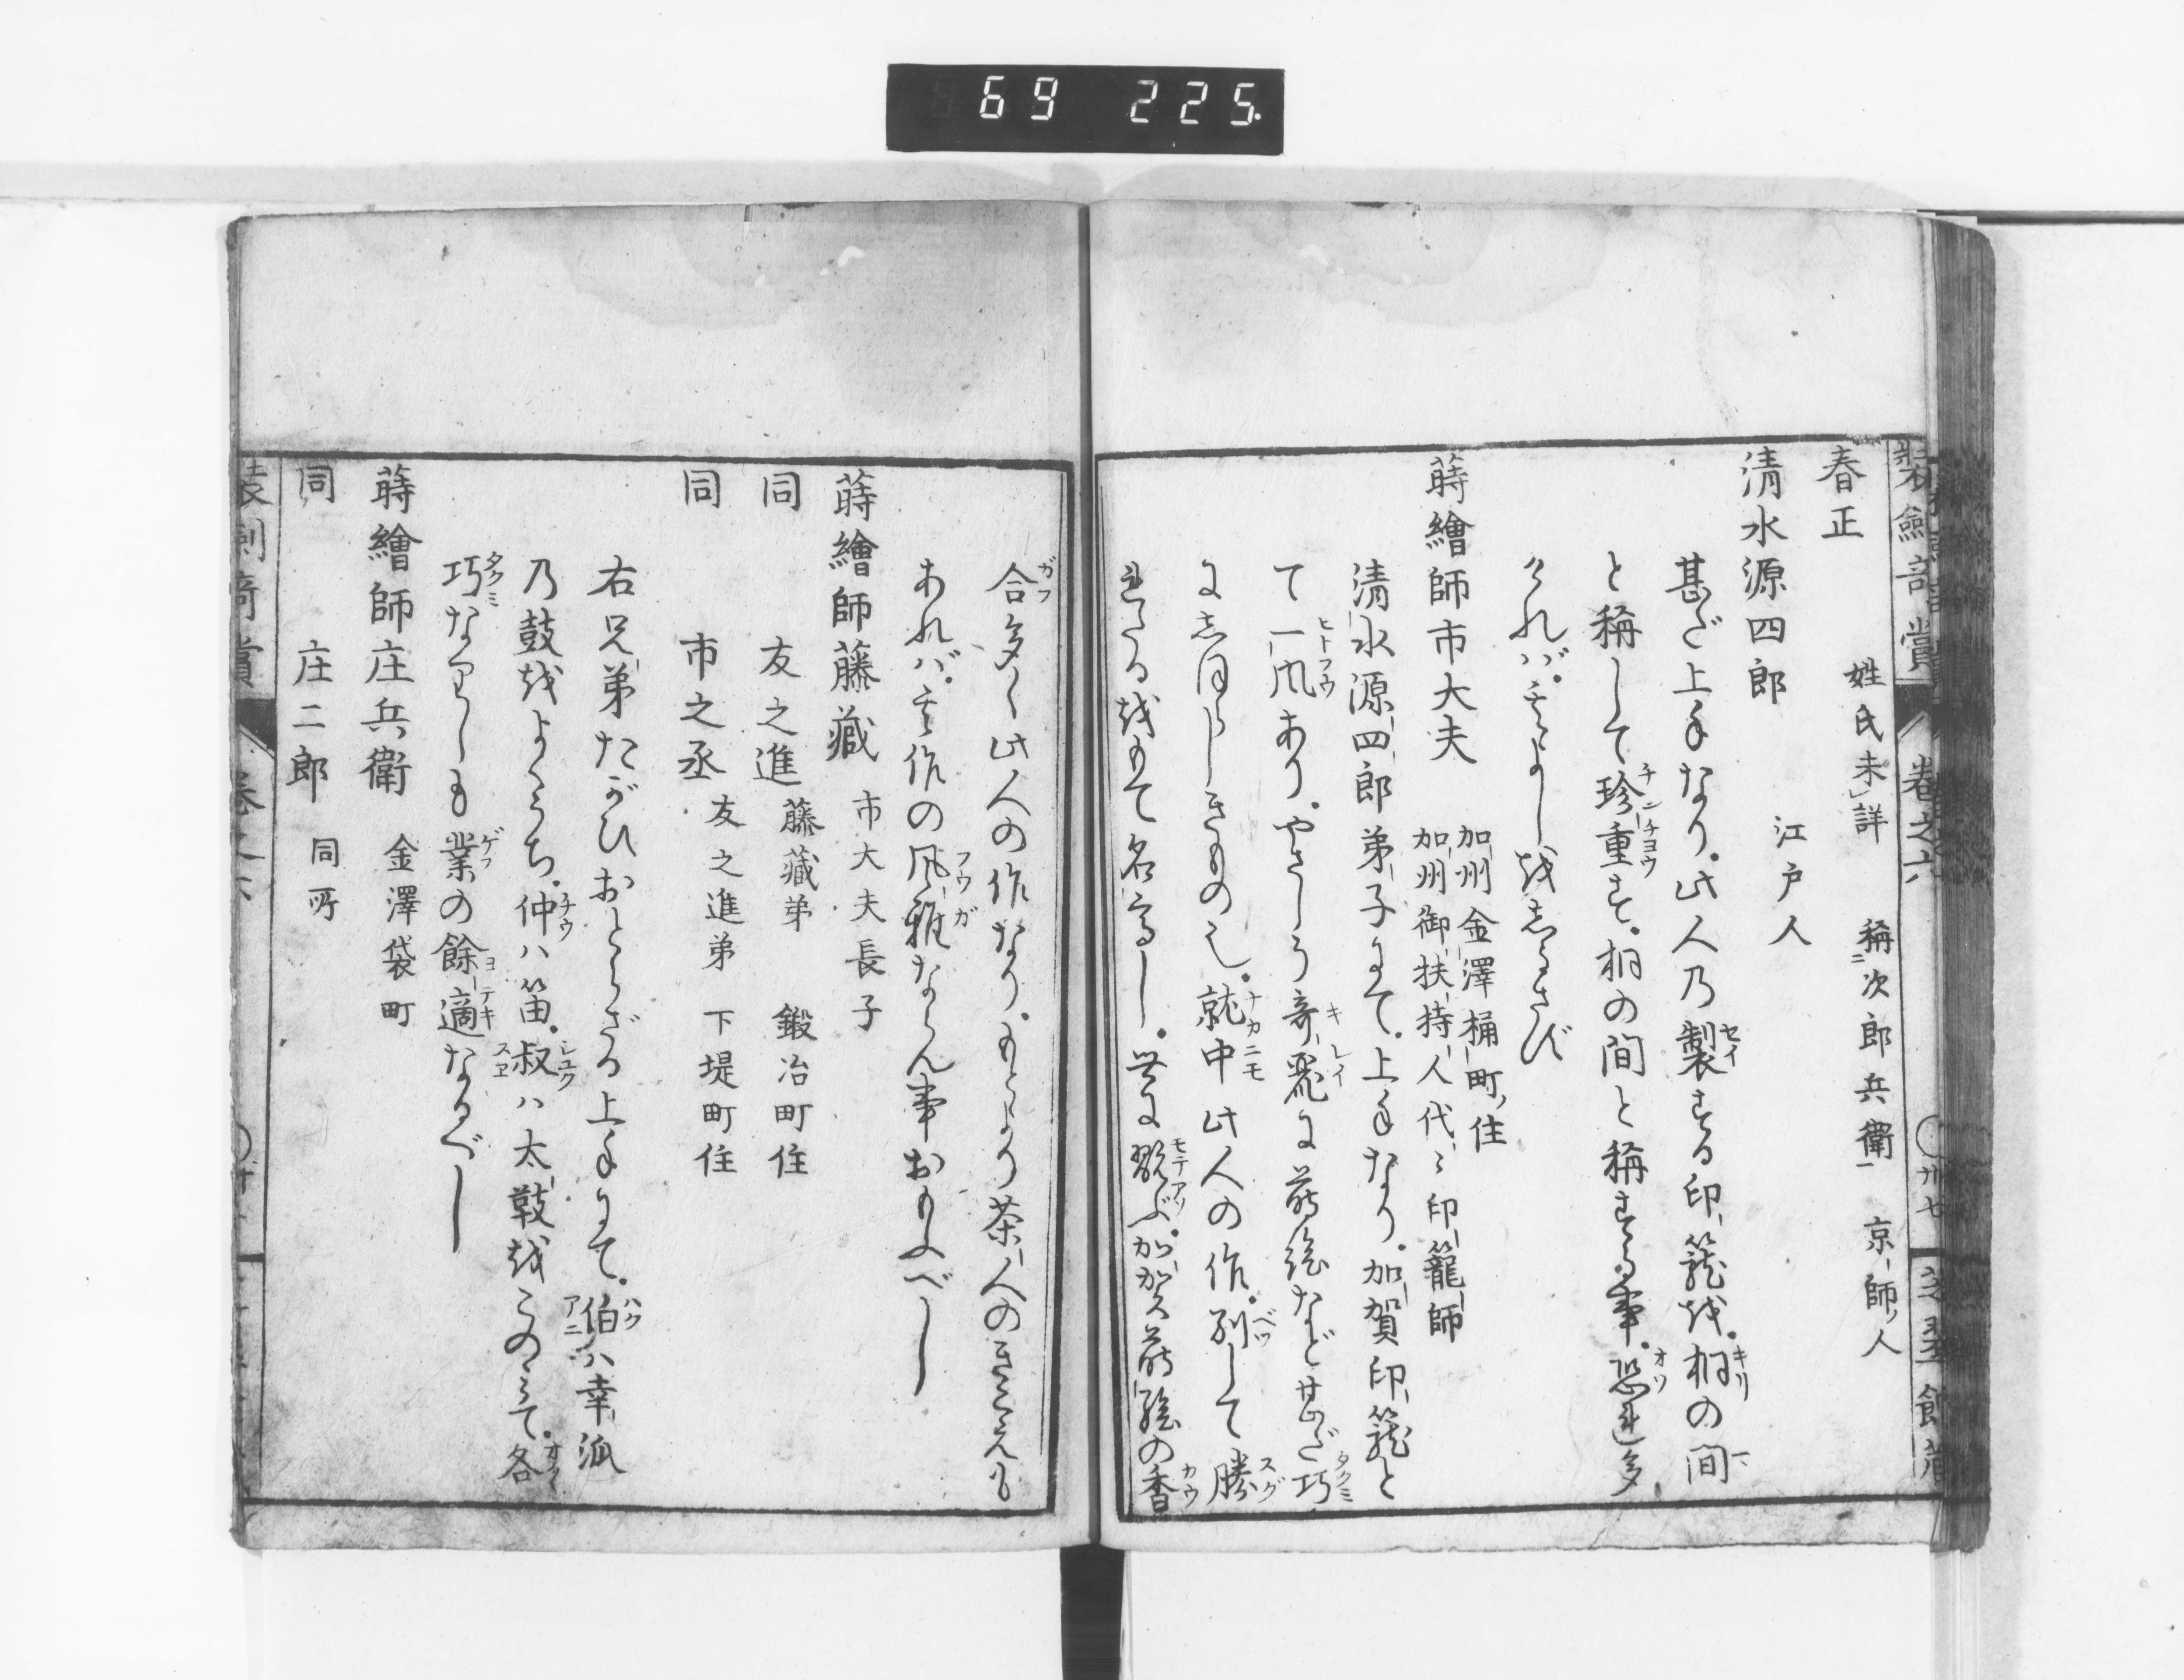 69 225.
装劔竒賞 巻之六 卅七
春正 姓氏未詳 稱次郎兵衛 京師人
清水源四郎 江戸人
甚だ上手なり。此人乃製する印籠越。桐の間
と稱して珍重す。桐の間と稱する事。恐連多
けれバ。其よし越志るさず
蒔繪師市大夫 加州金澤桶町住
加州御扶持人代〻印籠師
清水源四郎弟子にて。上手なり。加賀印籠と
て一風あり。やさしう奇麗に蒔絵など甚だ巧
に志ほらしきもの也。就中此人の作。別して勝
れたる越もて名高し。世に翫ぶ。加賀蒔絵の香
合多く此人の作なり。もとより茶人のきこえも
あれバ。其作の風雅ならん事おもふべし
蒔繪師藤藏 市大夫長子
同 友之進 藤藏弟 鍛冶町住
同 市之丞 友之進弟 下堤町住
右兄弟たがひおとらざる上手にて。伯ハ幸流
乃鼓越よくうち。仲ハ笛。叔ハ太鼓越このミて。各
巧なりしも業の餘適なるべし
蒔繪師庄兵衛 金澤袋町
同 庄二郎 同所
装劔竒賞 巻之六